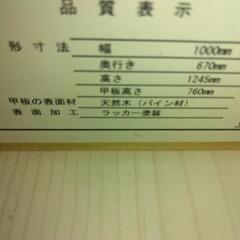 品質表示
形寸法 幅 1000mm
奥行き 670mm
高さ 1245mm
甲板高さ 760mm
甲板の表面材 天然木（パイン材）
表面加工 ラッカー塗装